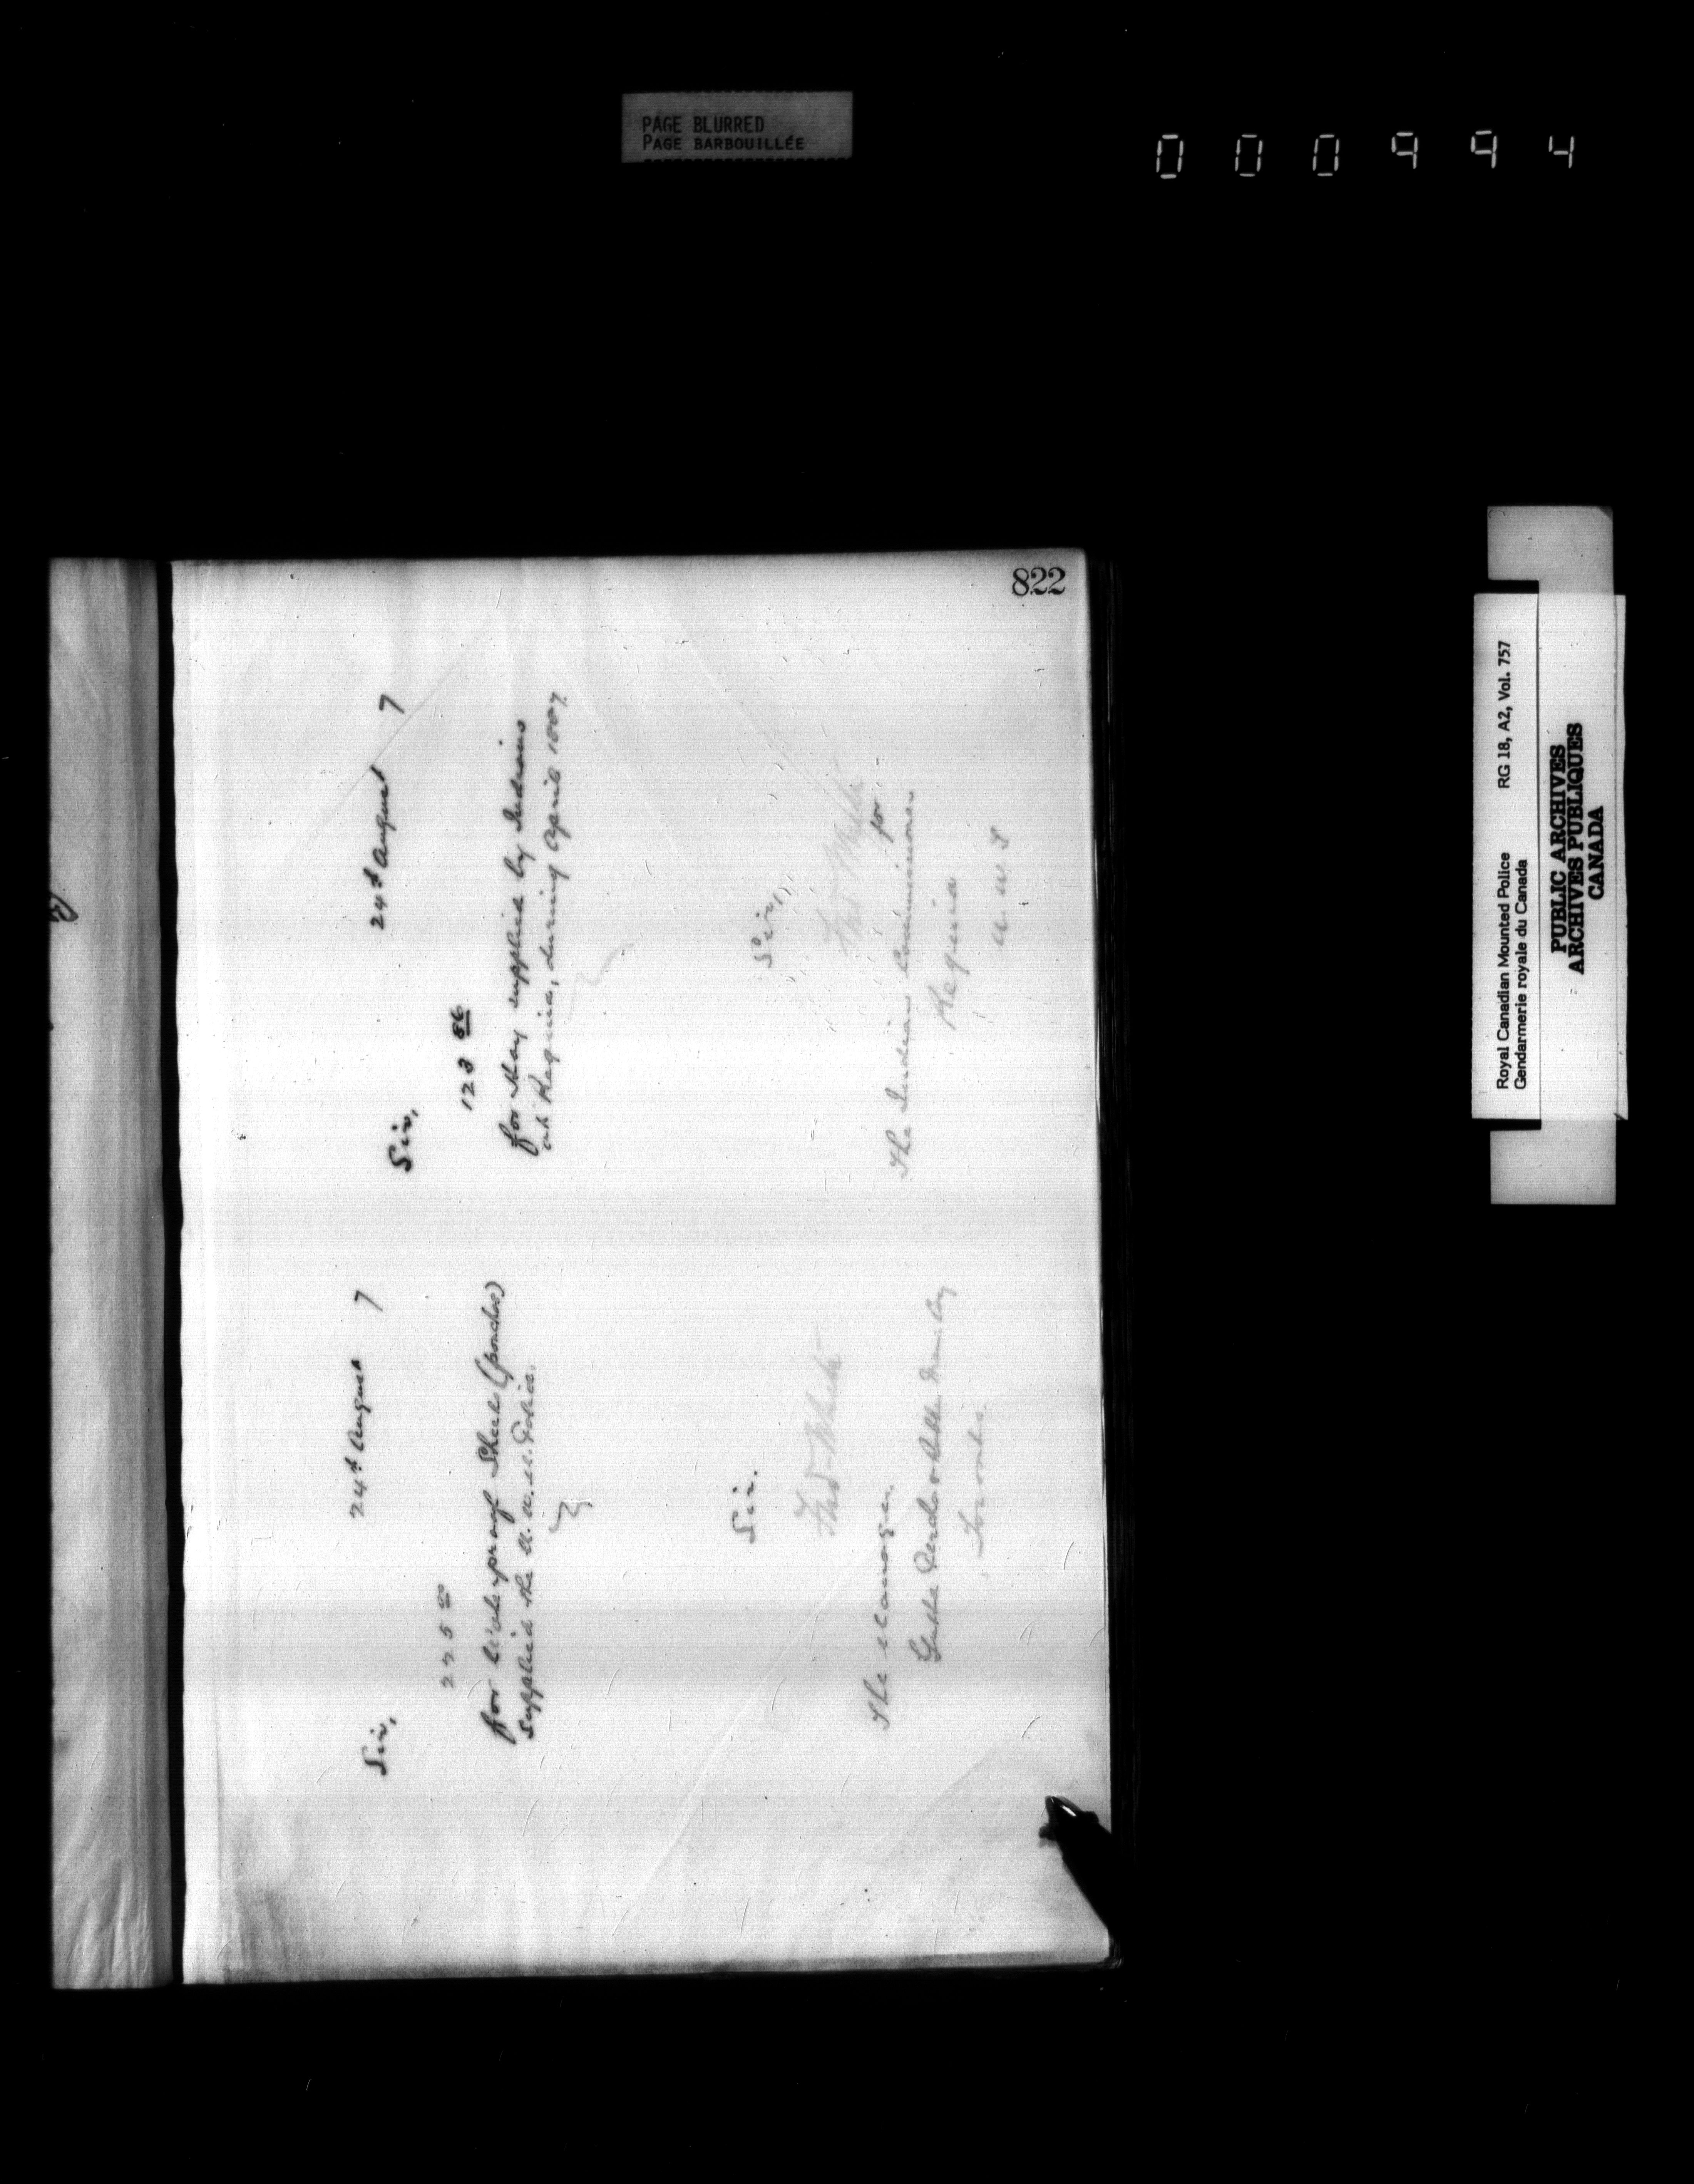 PAGE BLURRED
PAGE BARBOUILLÉE
822
24th August 7
Sir,
225 00
for Waterproof Sheets (ponchos)
supplied the N. W. M. Police.
Sir.
Fred White
The Manager
Gutta Percha & Rubber Man: Coy
Toronto.
24th August 7
Sir,
123 86
for Hay supplied by Indians
at Regina, during April 1887
Sir,
Fred White
for
The Indian Commissioner
Regina
N. W. T
Royal Canadian Mounted Police RG 18, A2, Vol. 757
Gendarmerie royale du Canada
PUBLIC ARCHIVES
ARCHIVES PUBLIQUES
CANADA